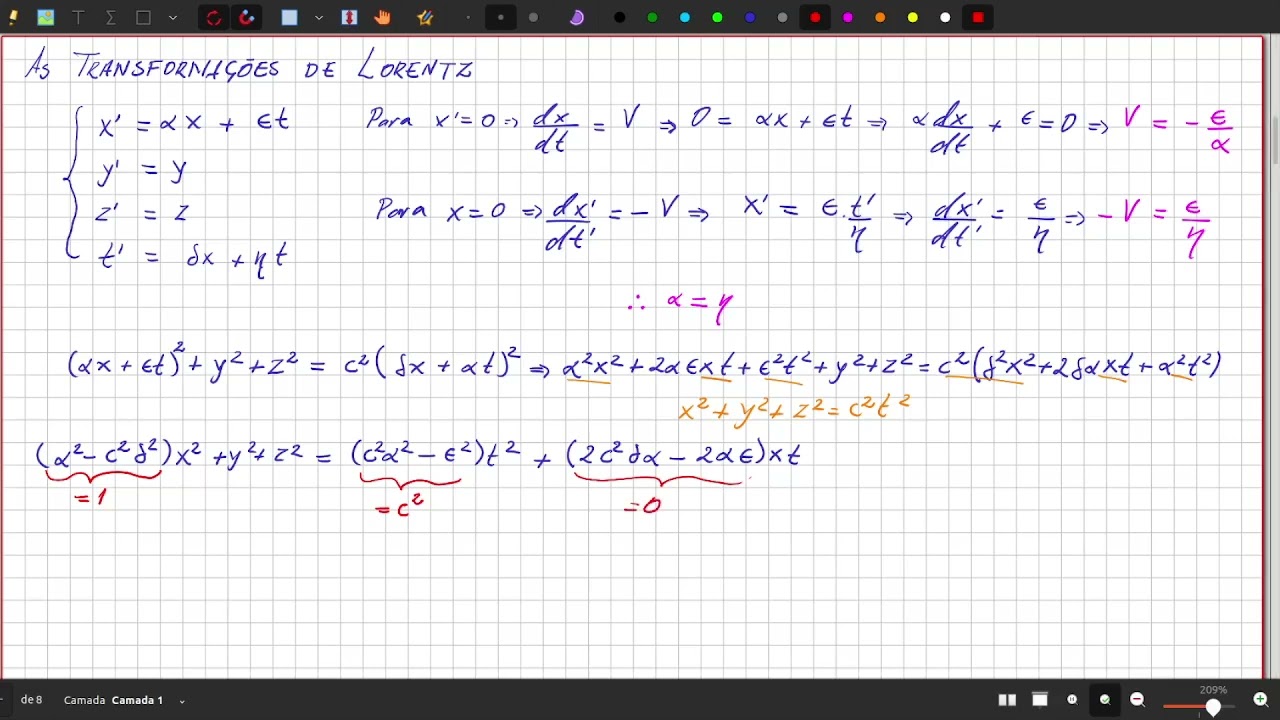 As Transformações de Lorentz
x' = αx + ϵt
y' = y
z' = z
t' = δx + ηt
Para x' = 0 ⇒ dx/dt = V ⇒ 0 = αx + ϵt ⇒ α dx/dt + ϵ = 0 ⇒ V = - ϵ/α
Para x = 0 ⇒ dx'/dt' = - V ⇒ x' = ϵ.t'/η ⇒ dx'/dt' = ϵ/η ⇒ - V = ϵ/η
∴ α = η
(αx + ϵt)² + y² + z² = c²(δx + αt)² ⇒ α²x² + 2αϵxt + ϵ²t² + y² + z² = c²(δ²x² + 2δαxt + α²t²)
x² + y² + z² = c²t²
(α² - c²δ²)x² + y² + z² = (c²α² - ϵ²)t² + (2c²δα - 2αϵ)xt
= 1 = c² = 0
de 8 Camada Camada 1 209%